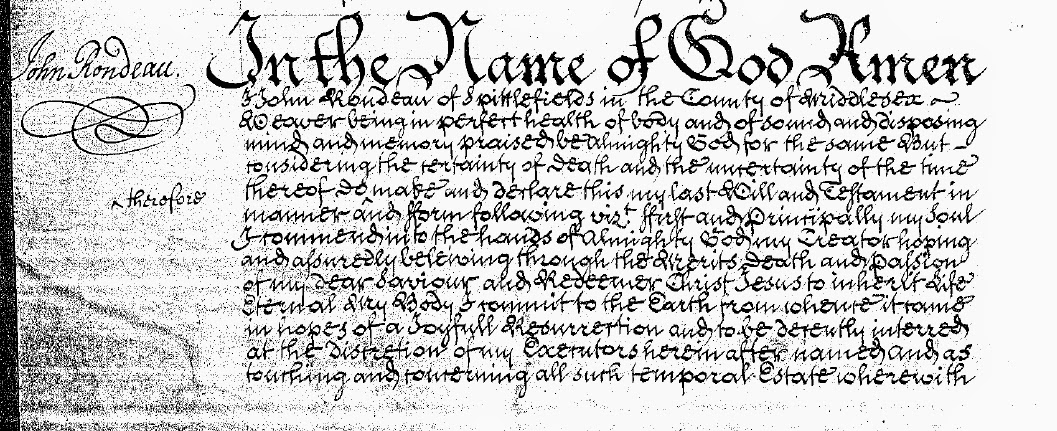 John Rondeau.
In the Name of God Amen
I John Rondeau of Spittlefields in the County of Middlesex
Weaver being in perfect health of body and of sound and disposing
mind and memory praised be Almighty God for the same But
considering the certainty of Death and the uncertainty of the time
therefore
thereof Do make and declare this my last Will and Testament in
manner and fform following vizt. ffirst and Principally my Soul
I commend into the hands of Almighty God my Creator hoping
and assuredly beleiving through the Merits Death and Passion
of my dear Saviour and Redeemer Christ Jesus to inherit Life
Eternal My Body I commit to the Earth from whence it came
in hopes of a Joyfull Resurrection and to be decently interred
at the Discretion of my Executors herein after named and as
touching and concerning all such temporal Estate wherewith